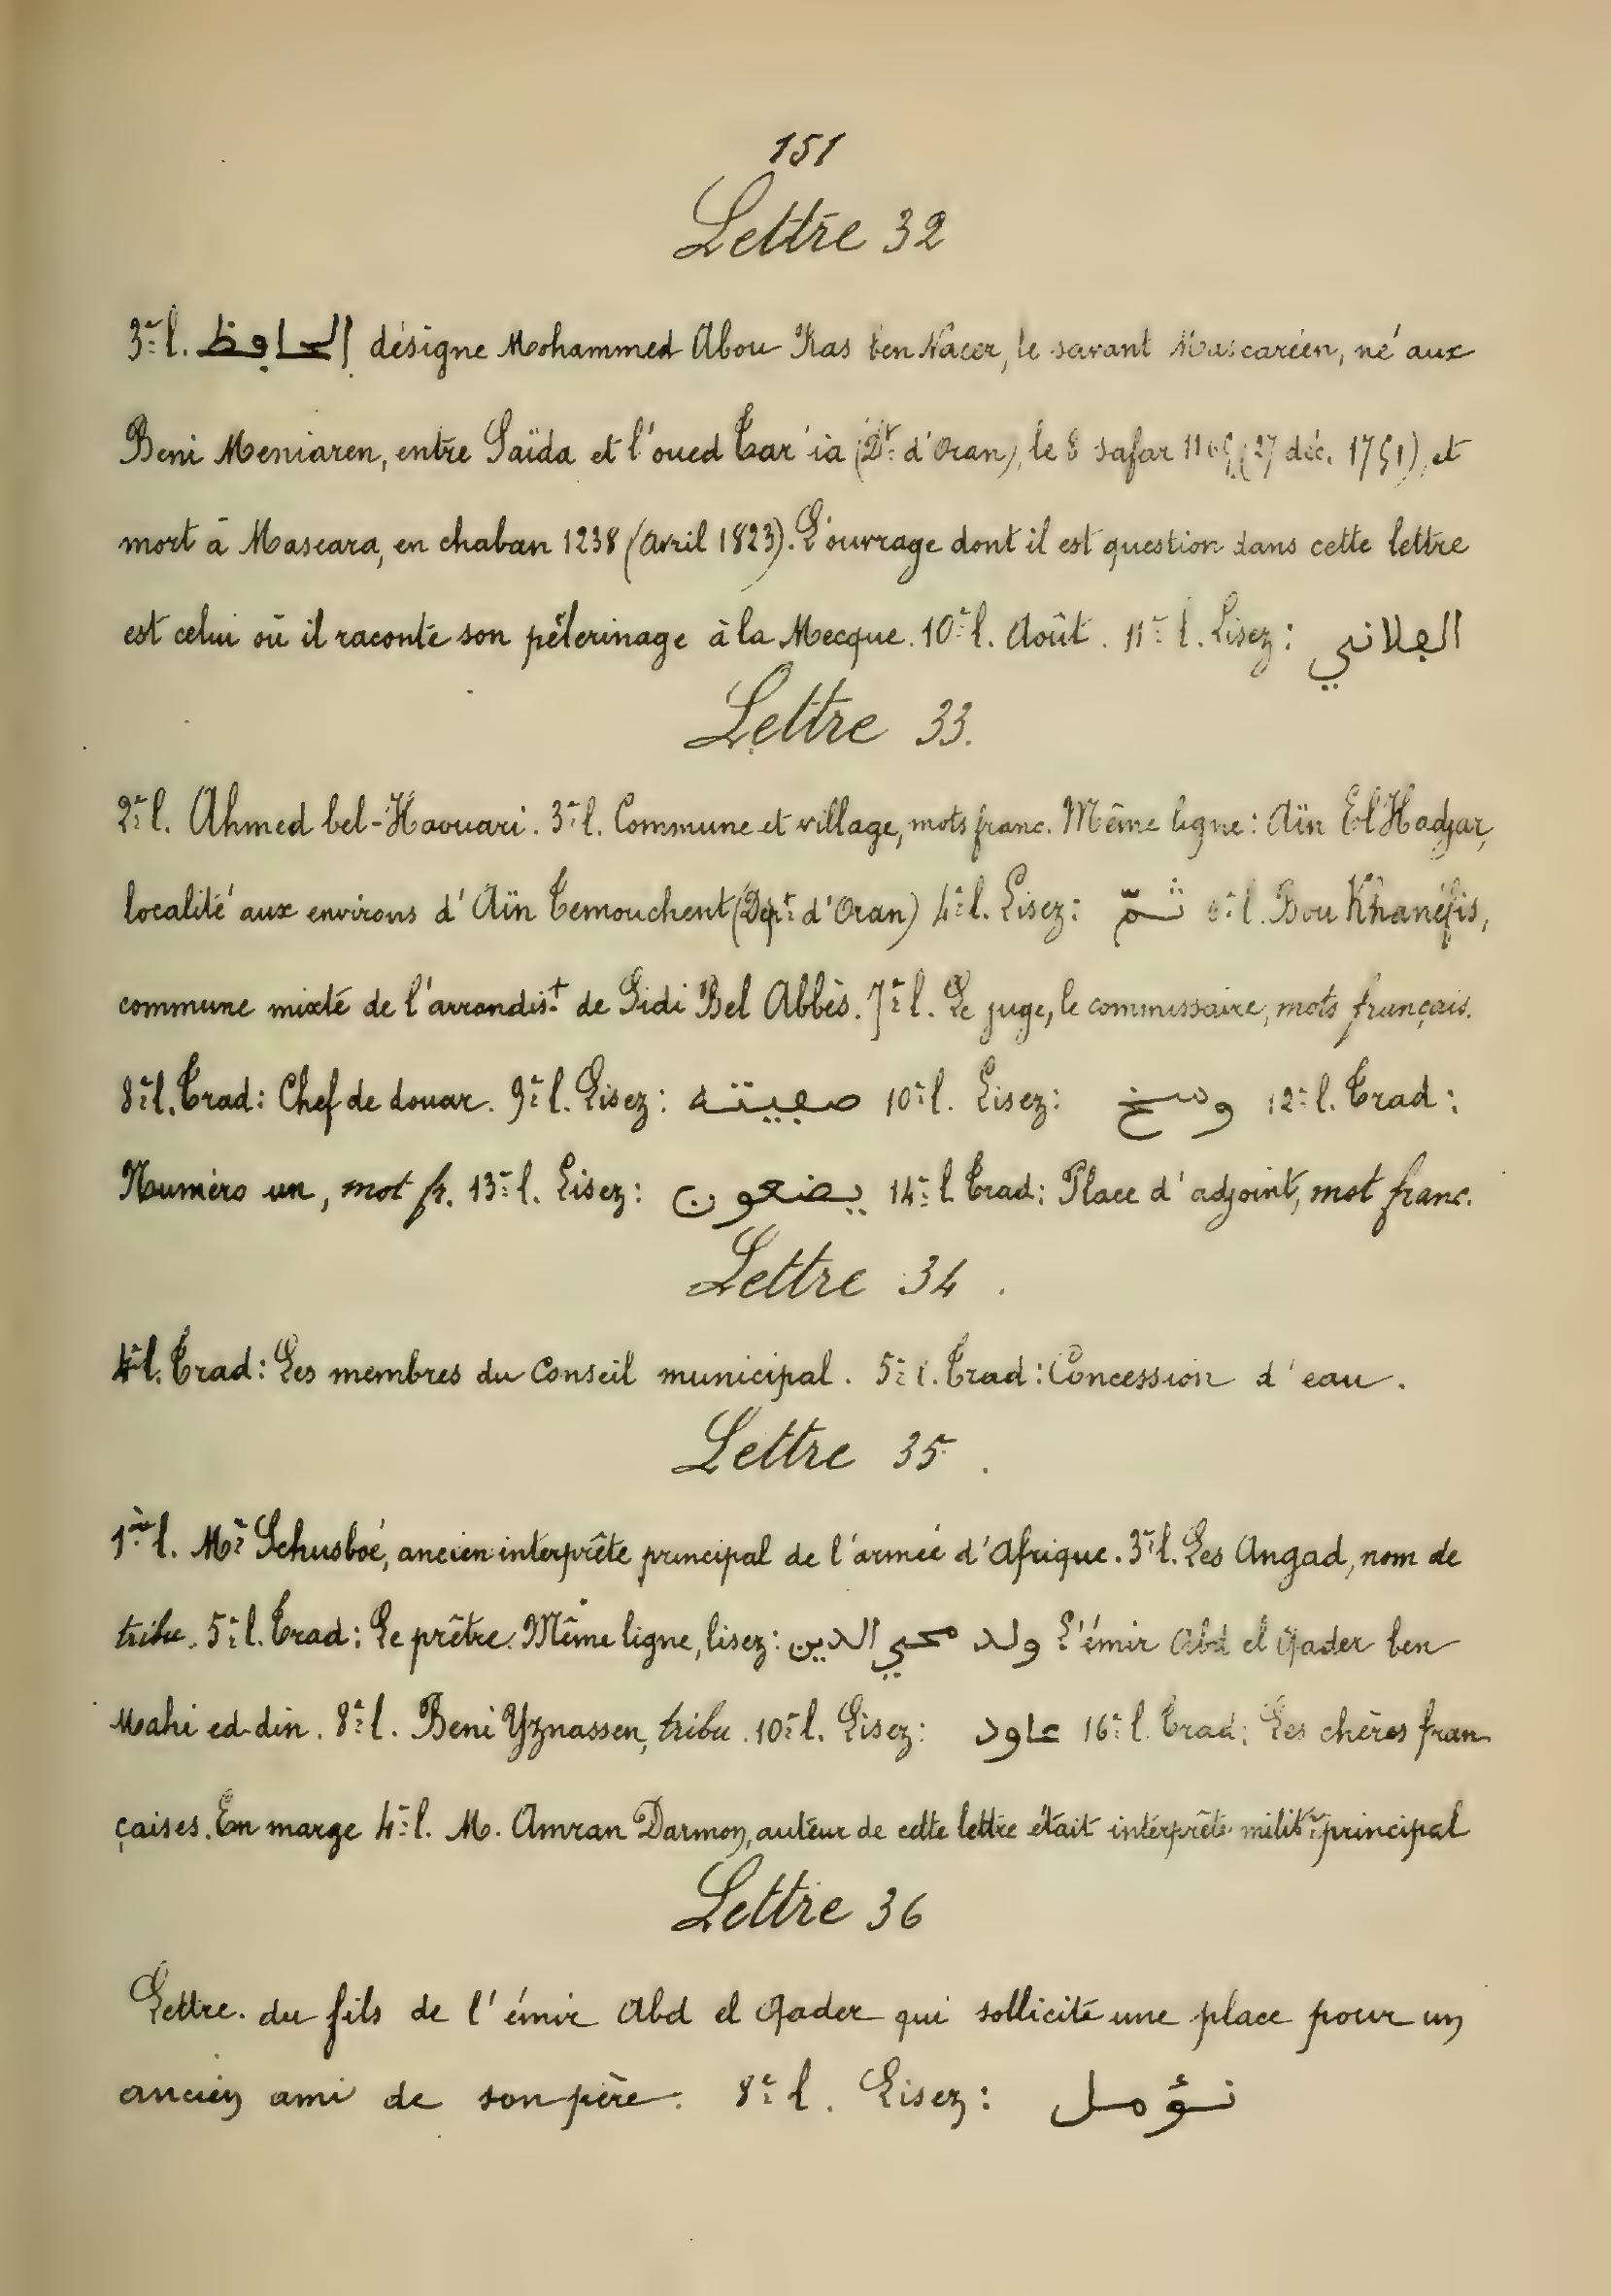 151
Lettre 32
3e l. الحافظ désigne Mohammed Abou Ras ben Nacer, le savant Mascaréen, né aux
Beni Meniaren, entre Saïda et l'oued Tar'ia (Dt. d'Oran), le 8 safar 1165 (27 déc. 1751), et
mort à Mascara, en chaban 1238 (avril 1823). L'ouvrage dont il est question dans cette lettre
est celui où il raconte son pèlerinage à la Mecque. 10e l. Août. 11e l. Lisez: الجلاني
Lettre 33.
2e l. Ahmed bel-Haouari. 3e l. Commune et village, mots franc. Même ligne: Aïn El Hadjar,
localité aux environs d'Aïn Temouchent (Dépt. d'Oran) 4e l. Lisez: ثَمّ 6e l. Bou Khanéfis,
commune mixte de l'arrondist. de Sidi Bel Abbès. 7e l. Le juge, le commissaire, mots français.
8e l. Trad: Chef de douar. 9e l. Lisez: 10e l. Lisez: وسخ 12e l. Trad:
Numéro un, mot fr. 13e l. Lisez: يضعون 14e l. Trad: Place d'adjoint, mot franc.
Lettre 34.
4e l. Trad: Les membres du Conseil municipal. 5e l. Trad: Concession d'eau.
Lettre 35.
1ère l. Mr Schusboé, ancien interprète principal de l'armée d'Afrique. 3e l. Les Angad, nom de
tribu. 5e l. Trad: Le prêtre. Même ligne, lisez: ولد محيي الدين L'émir Abd el Qader ben
Mahi ed-din. 8e l. Beni Yznassen, tribu. 10e l. Lisez: عاود 16e l. Trad: Les chères fran-
çaises. En marge 4e l. M. Amran Darmon, auteur de cette lettre était interprète milite principal
Lettre 36
Lettre du fils de l'émir Abd el Qader qui sollicite une place pour un
ancien ami de son père. 8e l. Lisez: نؤمل